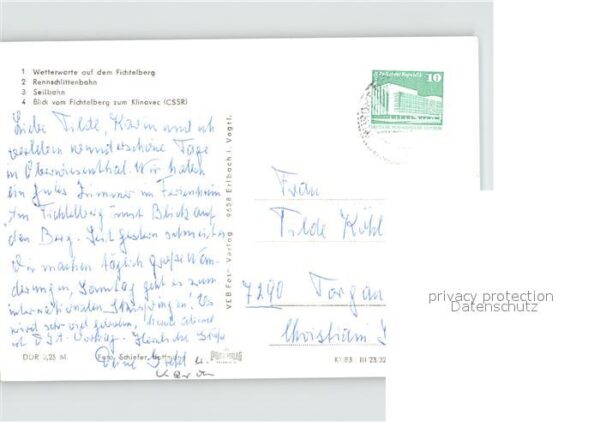 1 Wetterwarte auf dem Fichtelberg
2 Rennschlittenbahn
3 Seilbahn
4 Blick vom Fichtelberg zum Klinovec (CSSR)
Liebe Tilde, Karin und ich
verleben wunderschöne Tage
in Oberwiesenthal. Wir haben
ein gutes Zimmer im Ferienheim
"Am Fichtelberg" mit Blick auf
den Berg. Seit gestern schneit es
Wir machen täglich große Wan-
derungen, Sonntag geht es zum
internationalen Skispringen! Es
wird sehr viel geboten, heute Abend
ist Vortrag. Herzliche Grüße
Deine u.
Karin
DDR 0,25 M.
Foto: Schiefer,
VEB Foto-Verlag 9658 Erlbach i. Vogtl.
10
Frau
Tilde Kühl
7290 Torgau
Christian
privacy protection
Datenschutz